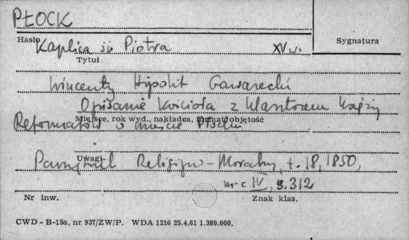 PŁOCK
Hasło Kaplica św Piotra XV w. Sygnatura
Tytuł
Wincenty Hipolit Gawarecki
Opisanie Kościoła z klasztorem księży
Miejsce, rok wyd., nakładca, format, objętość
Reformatów w mieście Płocku
Uwagi
Pamiętnik Religijno-Moralny, t. 18, 1850,
nr IV, s. 312
Nr inw. Znak klas.
CWD - B-15a, nr 937/ZW/P. WDA 1216 25.4.61 1.380.000.